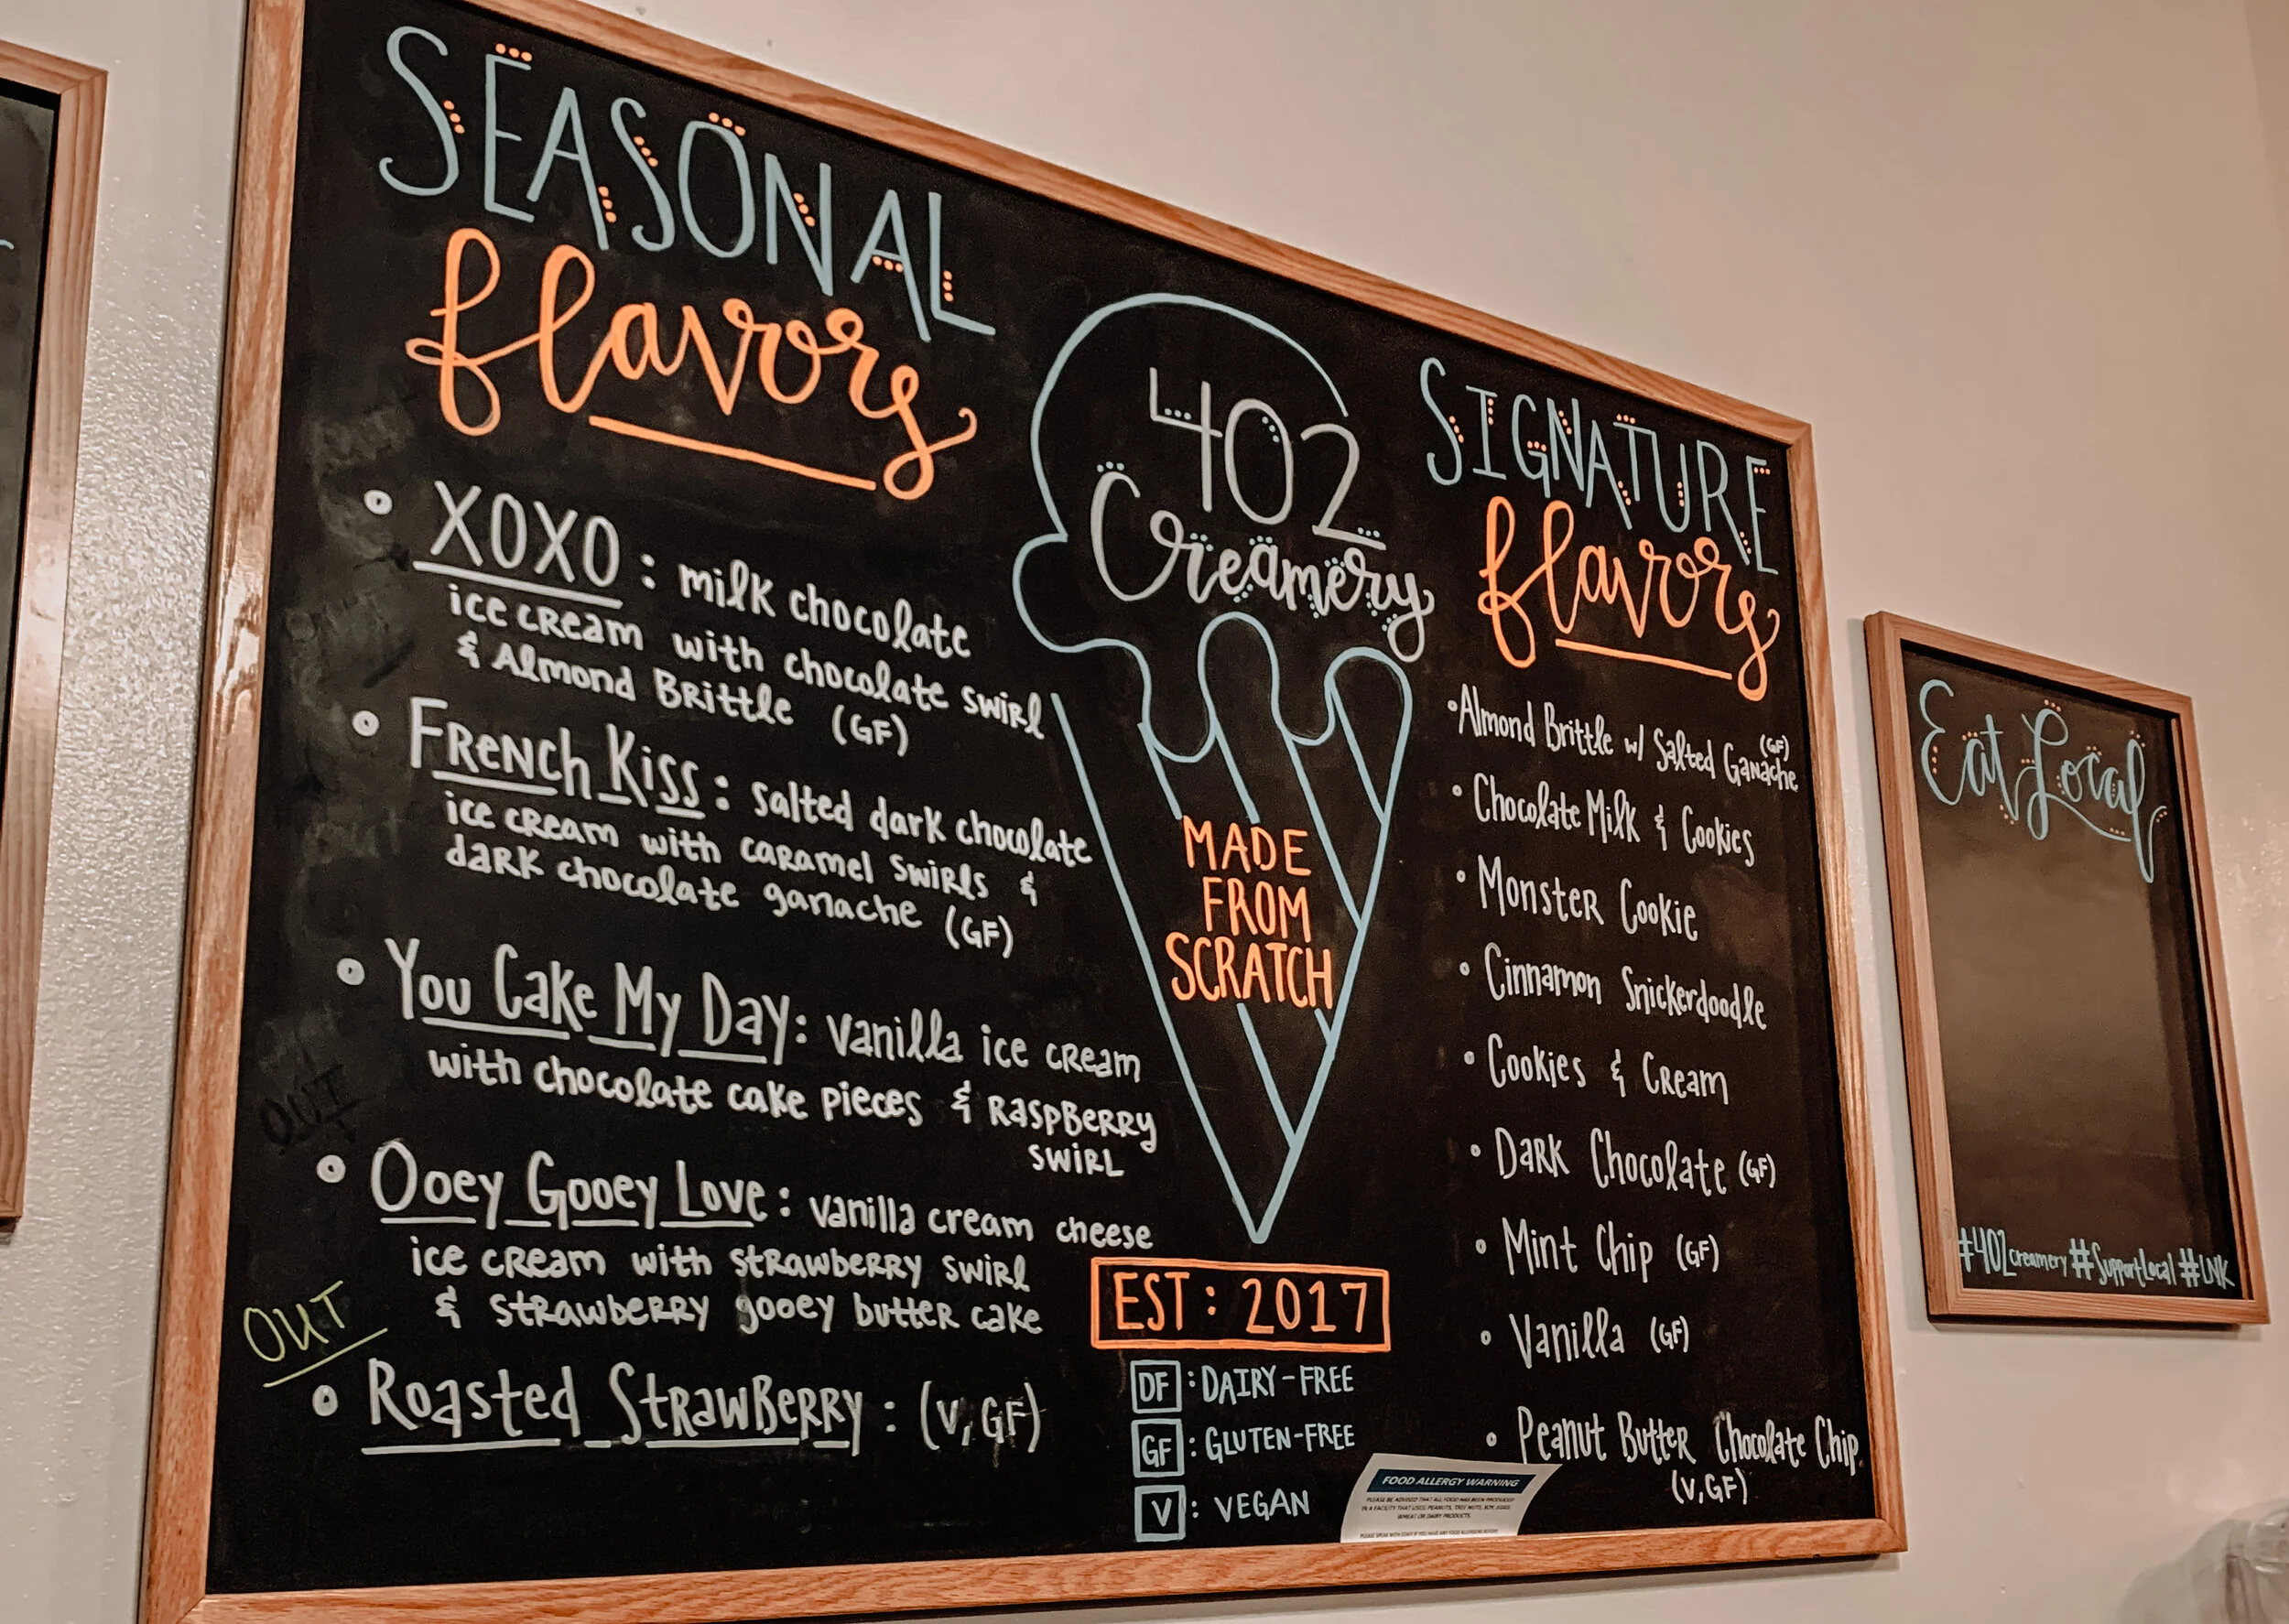 SEASONAL
flavors
XOXO : milk chocolate
ice cream with chocolate swirl
& Almond Brittle (GF)
French Kiss : salted dark chocolate
ice cream with caramel swirls &
dark chocolate ganache (GF)
You Cake My Day: vanilla ice cream
with chocolate cake pieces & raspberry
swirl
OUT
Ooey Gooey Love : vanilla cream cheese
ice cream with strawberry swirl
& strawberry gooey butter cake
OUT
Roasted Strawberry : (V, GF)
402
Creamery
MADE
FROM
SCRATCH
EST : 2017
DF : DAIRY-FREE
GF : GLUTEN-FREE
V : VEGAN
SIGNATURE
flavors
Almond Brittle w/ Salted Ganache (GF)
Chocolate Milk & Cookies
Monster Cookie
Cinnamon Snickerdoodle
Cookies & Cream
Dark Chocolate (GF)
Mint Chip (GF)
Vanilla (GF)
Peanut Butter Chocolate Chip
(V, GF)
FOOD ALLERGY WARNING
PLEASE BE ADVISED THAT ALL FOOD HAS BEEN PRODUCED
IN A FACILITY THAT USES PEANUTS, TREE NUTS, SOY, EGGS,
WHEAT OR DAIRY PRODUCTS.
PLEASE SPEAK WITH STAFF IF YOU HAVE ANY FOOD ALLERGIES
Eat Local
#402creamery #SupportLocal #LNK